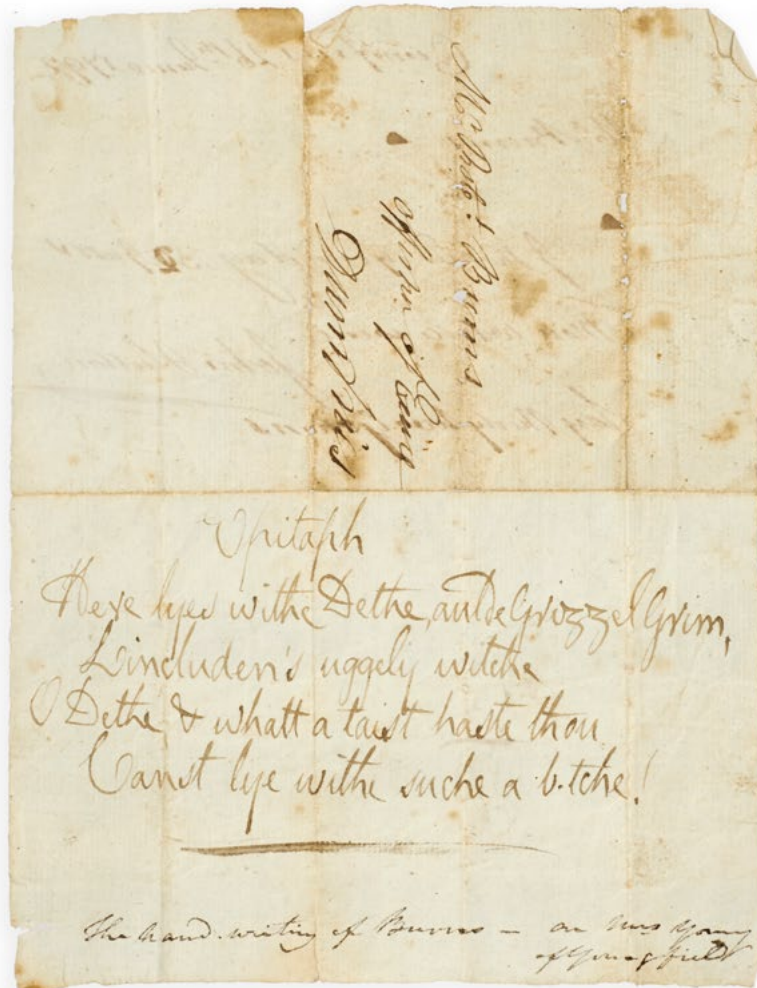 Mr. Robt. Burns
Officer of Excise
Dumfries
Epitaph
Here lyes withe Dethe, aulde Grizzel Grim,
Lincluden's uggely witche
O Dethe & whatt a taist haste thou
Canst lye withe suche a b.tche!
The hand-writing of Burns — on Mrs Young
of Youngfield